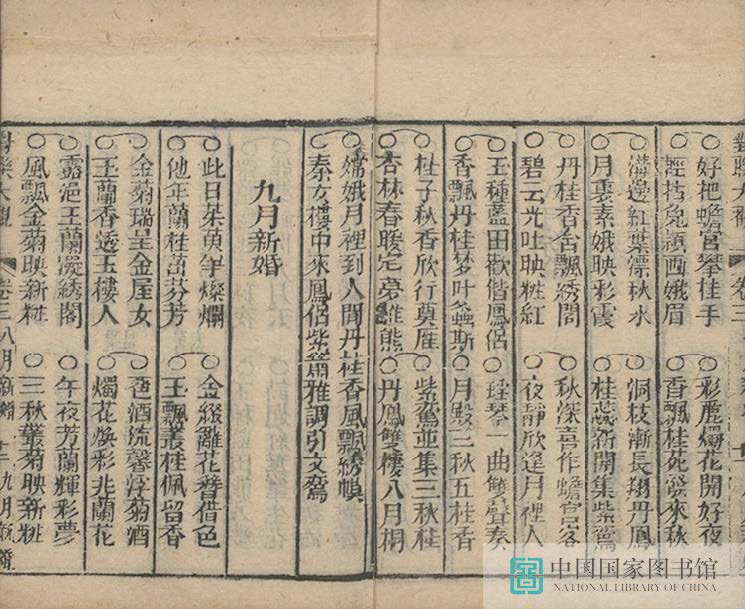 對聯大觀 卷三
好把蟾宮攀桂手 彩麗燭花開好夜
輕拈兔穎画娥眉 香飄桂苑發來秋
溝邊紅葉漂秋水 洞枝漸長翔丹鳳
月裏素娥映彩霞 桂蕊新開集紫鸞
丹桂香含飄綉閣 秋深喜作蟾宮客
碧云光吐映粧紅 夜靜欣逢月裡人
玉種藍田歡偕鳳侶 瑤琴一曲雙聲奏
香飄丹桂梦叶螽斯 月殿三秋五桂香
杜子秋香欣行奠雁 紫鸞並集三秋桂
杏林春暖定夢維熊 丹鳳雙棲八月桐
嫦娥月裡到人間丹桂香風飄綉幌
秦女樓中來鳳侶紫簫雅調引文鸞
九月新婚
此日茱萸争燦爛 金綴離花簪借色
他年蘭桂茁芬芳 玉飄叢桂佩留香
金菊瑞呈金屋女 卺酒流馨浮菊酒
玉蘭香透玉樓人 燭花煥彩兆蘭花
露浥玉蘭凝綉閣 午夜芳蘭輝彩夢
風飄金菊映新粧 三秋叢菊映新粧
對聯大觀 卷三 八月新婚 十二 九月新婚
中国国家图书馆
NATIONAL LIBRARY OF CHINA